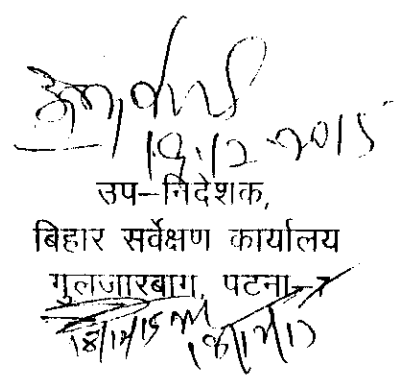 19.12.2015
उप–निदेशक,
बिहार सर्वेक्षण कार्यालय
गुलजारबाग, पटना
18/12/15